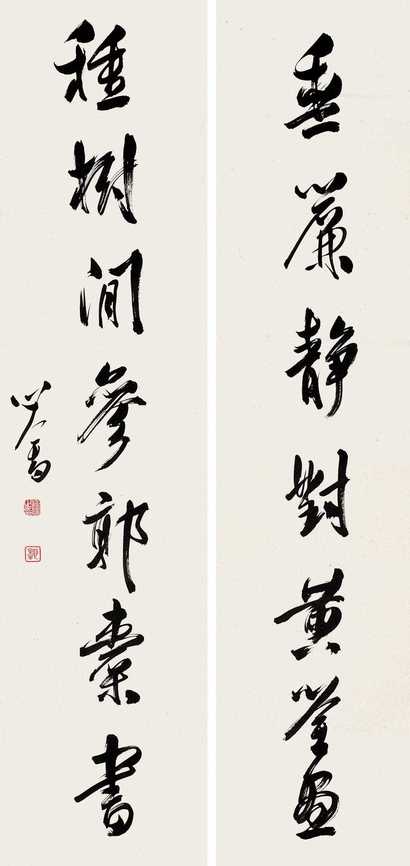 垂簾靜對黃筌畫
種樹閒參郭橐書
心畬